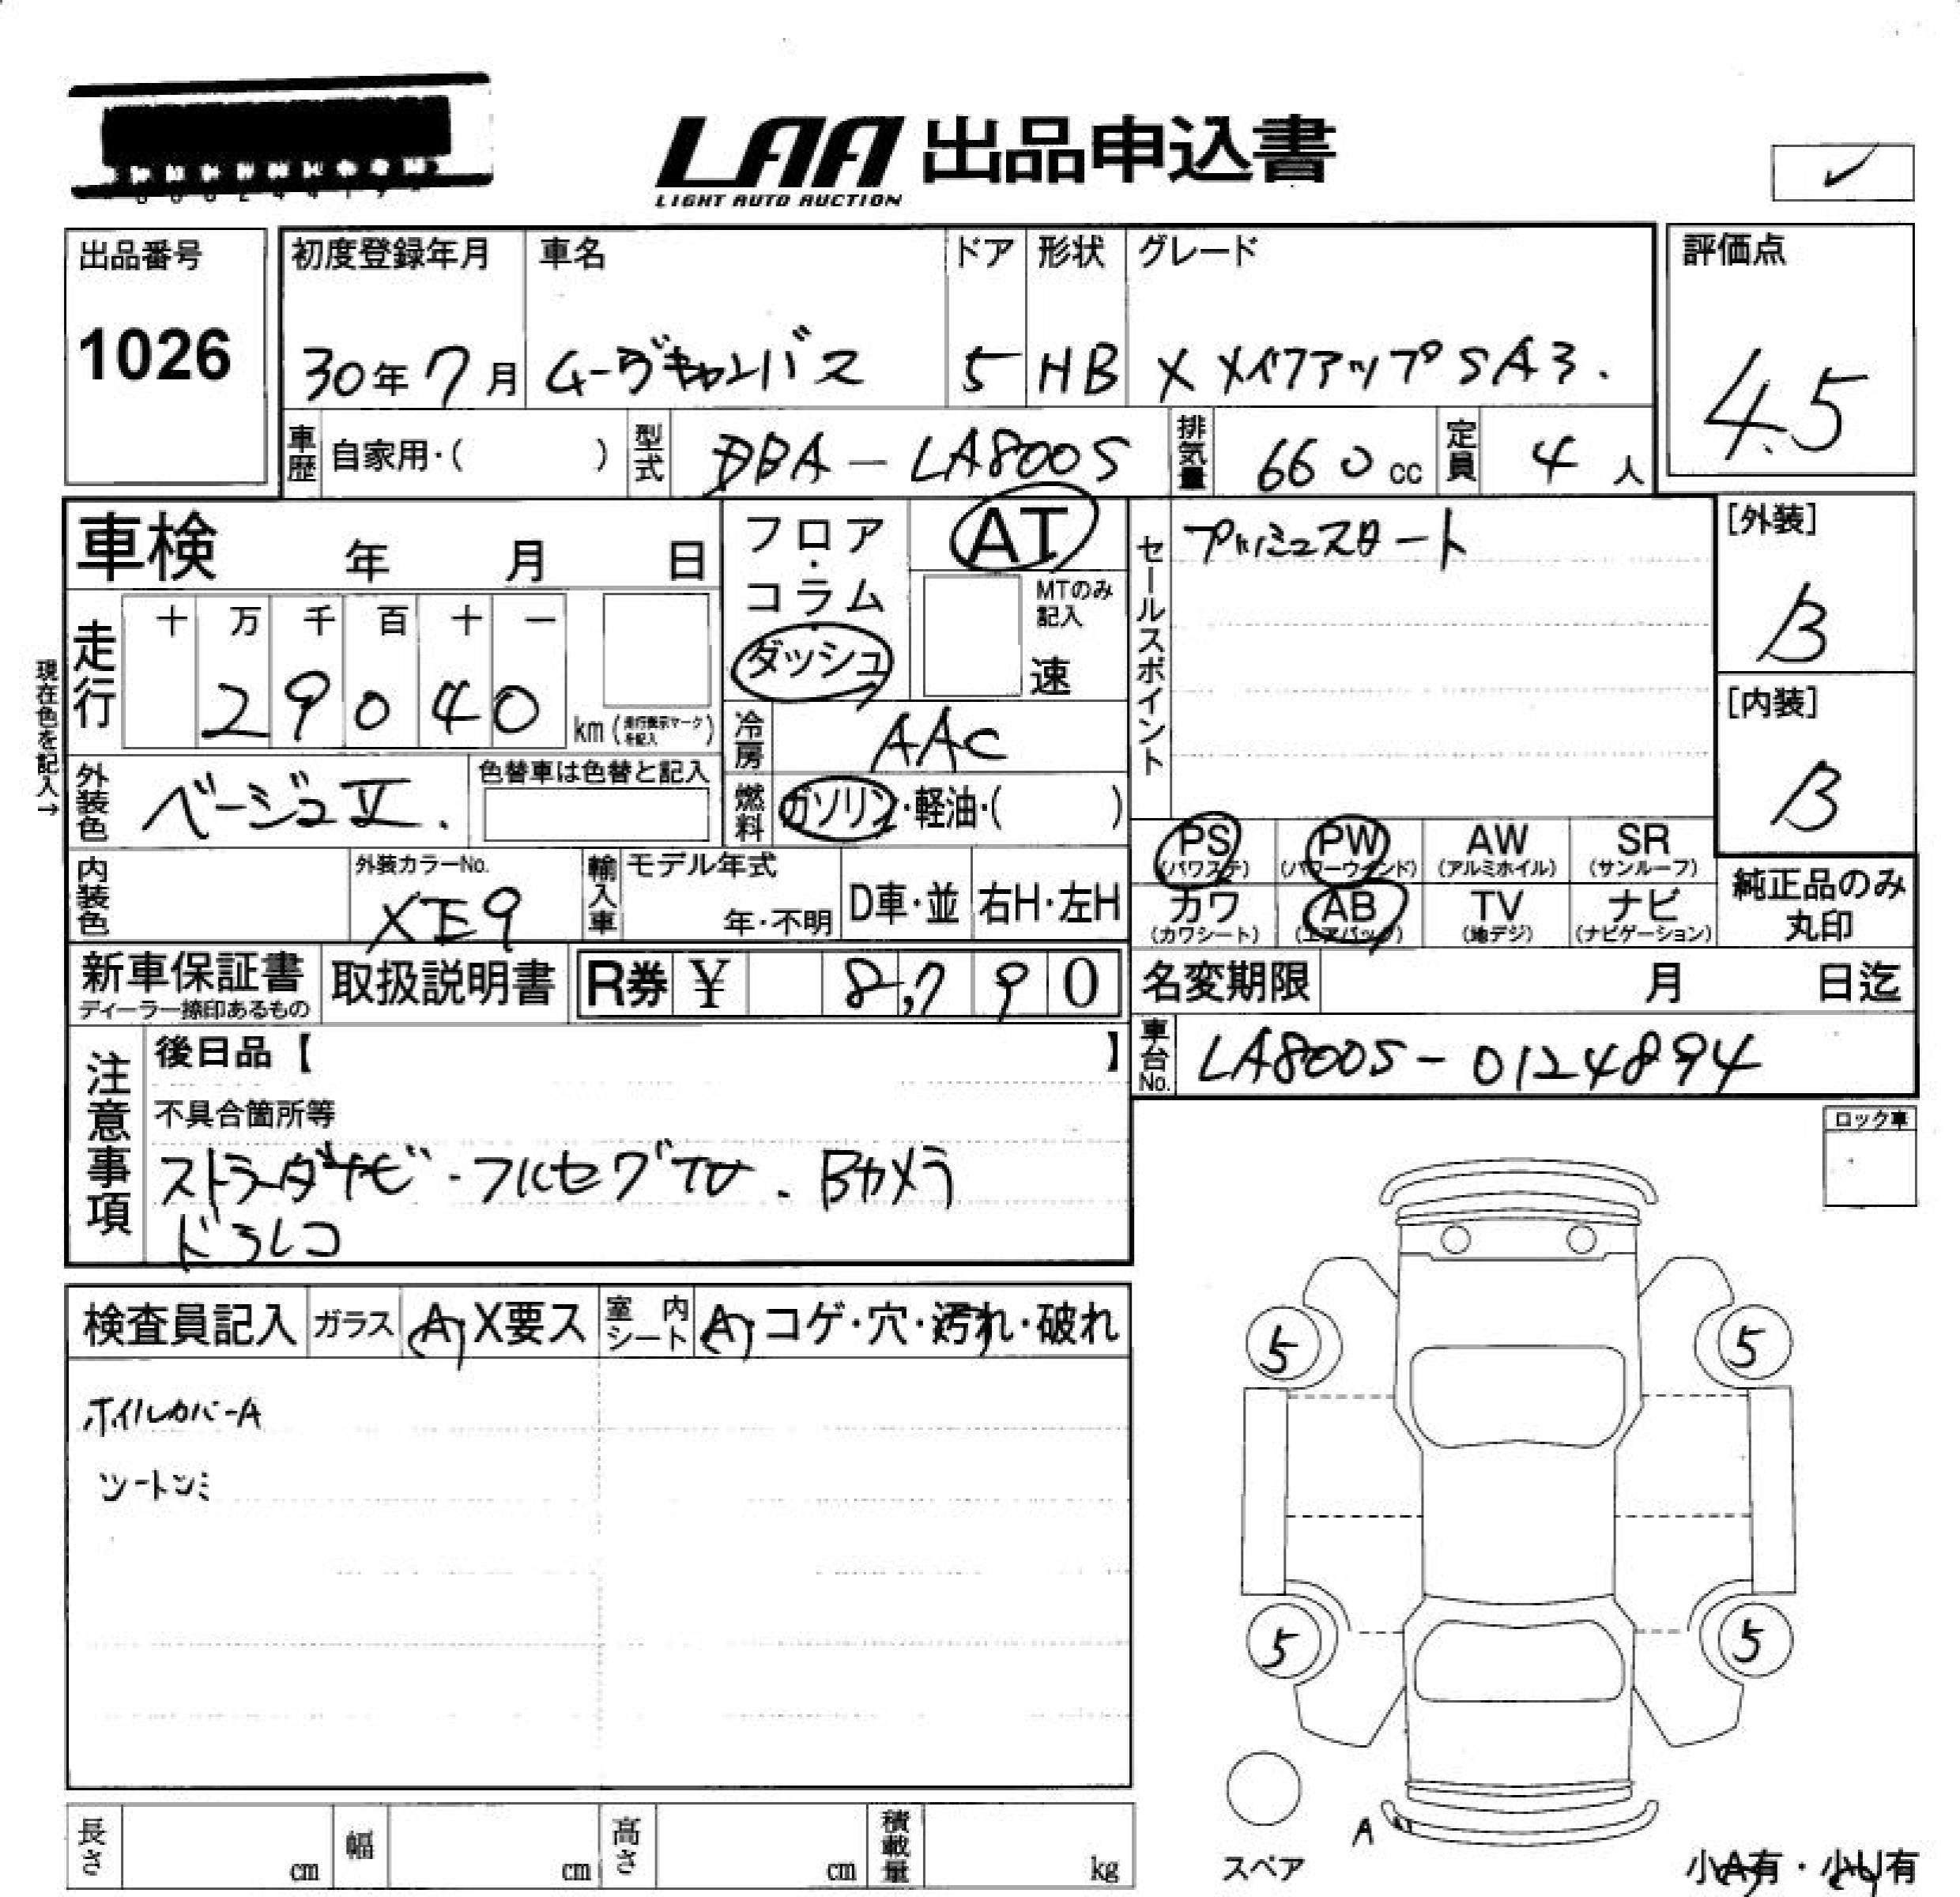 LAA 出品申込書
LIGHT AUTO AUCTION
出品番号
1026
初度登録年月
30年7月
車名
ムーヴキャンバス
ドア
5
形状
HB
グレード
X メイクアップSA3.
評価点
4.5
車歴 自家用・( )
型式 DBA-LA800S
排気量 660cc
定員 4人
車検 年 月 日
フロア・コラム・ダッシュ
AT
MTのみ記入
速
セールスポイント
プッシュスタート
[外装]
B
[内装]
B
現在色を記入→
走行
十 万 千 百 十 一
2 9 0 4 0
km(走行表示マークを記入)
冷房 AAC
外装色 ベージュⅡ.
色替車は色替と記入
燃料 ガソリン・軽油・( )
内装色
外装カラーNo.
XE9
輸入車
モデル年式
年・不明
D車・並
右H・左H
PS (パワステ)
PW (パワーウインド)
AW (アルミホイル)
SR (サンルーフ)
カワ (カワシート)
AB (エアバック)
TV (地デジ)
ナビ (ナビゲーション)
純正品のみ
丸印
新車保証書
ディーラー捺印あるもの
取扱説明書
R券 ¥ 8,790
名変期限 月 日迄
車台No. LA800S-0124894
注意事項
後日品【 】
不具合箇所等
ストラーダナビ・フルセグTV. Bカメラ
ドラレコ
ロック車
検査員記入 ガラス A・X要ス 室内シート A・コゲ・穴・汚れ・破れ
ホイルカバーA
シートシミ
5
5
5
5
スペア
A
小A有・小U有
長さ cm 幅 cm 高さ cm 積載量 kg